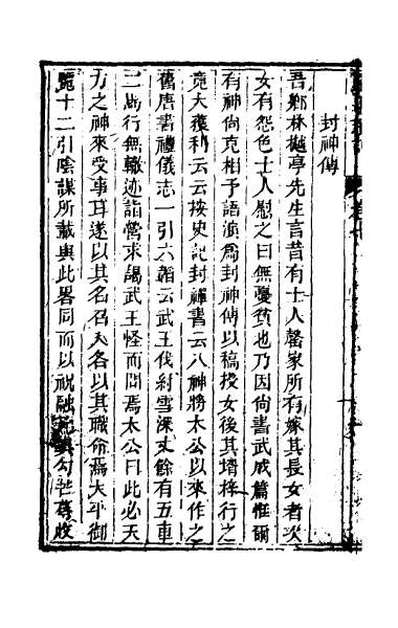 封神傳
吾鄉林樾亭先生言昔有士人罄家所有嫁其長女者次
女有怨色士人慰之曰無憂貧也乃因尚書武成篇惟爾
有神尚克相予語演為封神傳以稿授女後其壻梓行之
竟大獲利云云按史記封禪書云八神將太公以來作之
舊唐書禮儀志一引六韜云武王伐紂雪深丈餘有五車
二馬行無轍迹詣營求謁武王怪而問焉太公曰此必天
方之神來受事耳遂以其名召入各以其職命焉太平御
覽十二引陰謀所載與此畧同而以祝融 勾芒 收